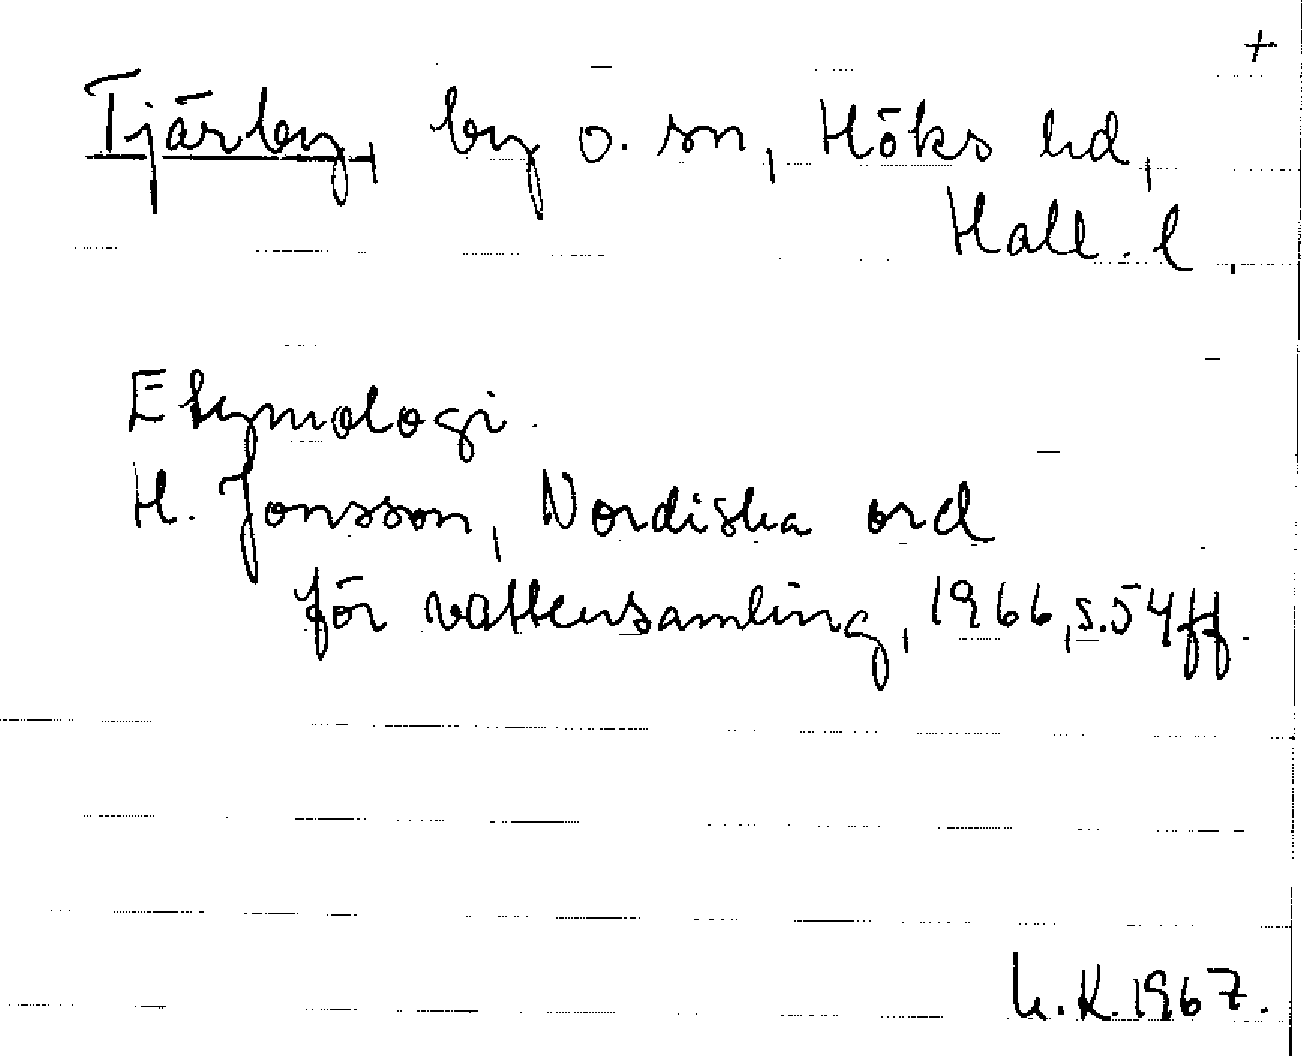 +
Tjärby, by o. sn, Höks hd,
Hall. l.
Etymologi.
H. Jonsson, Nordiska ord
för vattensamling, 1966, s. 54 ff.
K. 1967.